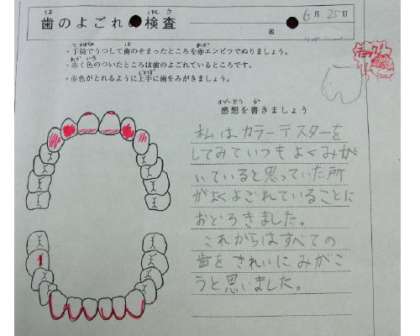 歯のよごれ 検査
6月25日
・手鏡でうつして歯のそまったところを赤エンピツでぬりましょう。
・赤く色のついたところは歯のよごれているところです。
・赤色がとれるように上手に歯をみがきましょう。
感想を書きましょう
私はカラーテスターを
してみていつもよくみが
いていると思っていた所
がよくよごれていることに
おどろきました。
これからはすべての
歯をきれいにみがこ
うと思いました。